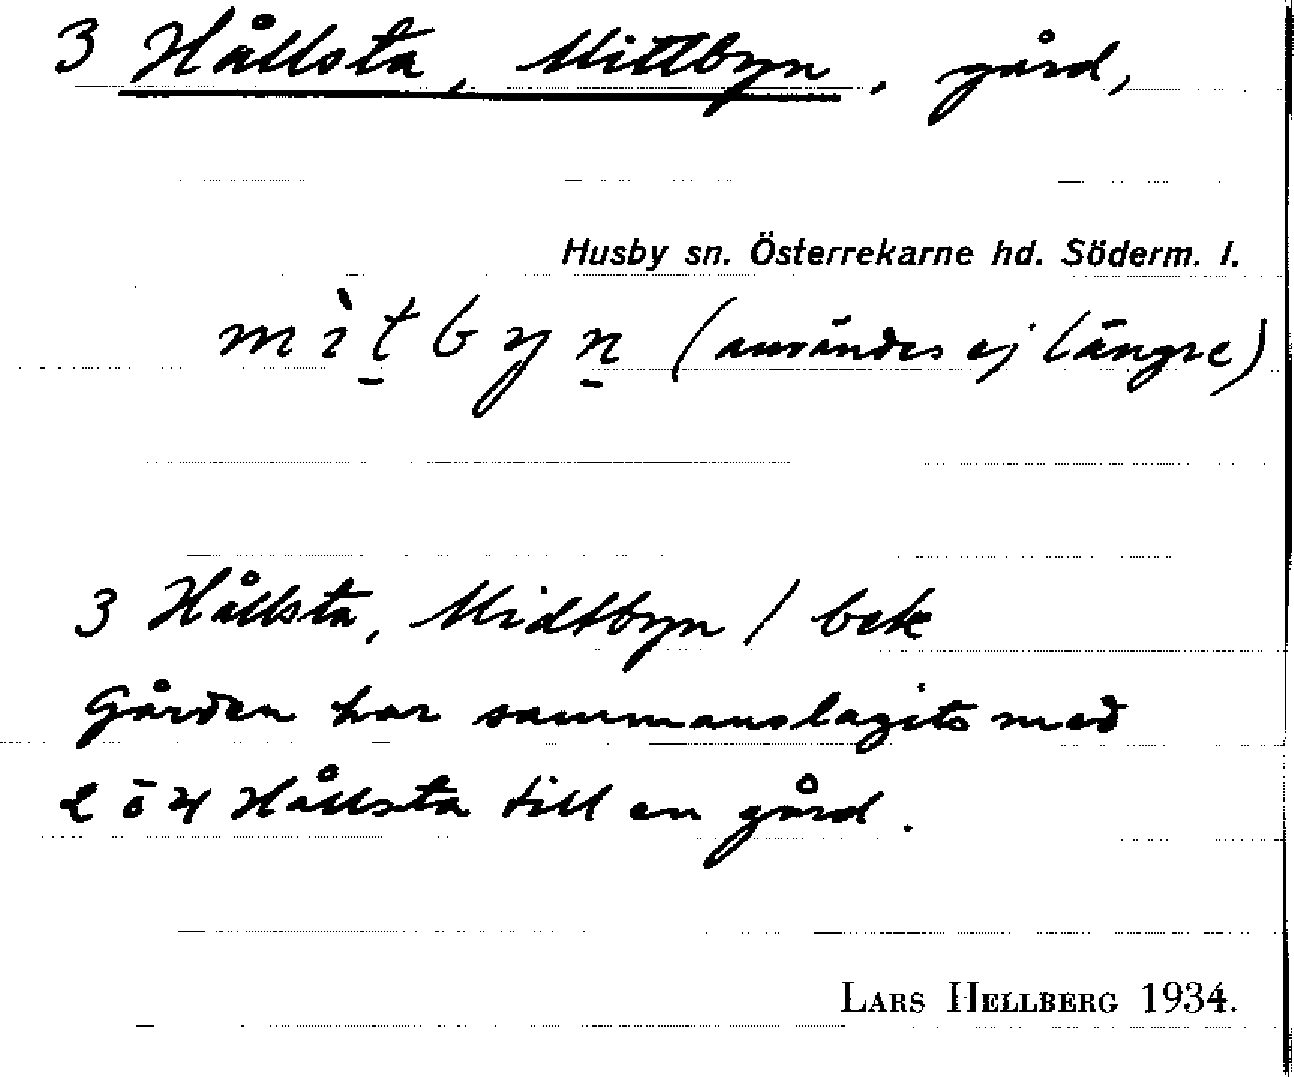 3 Hållsta, Mittbyn, gård,
Husby sn. Österrekarne hd. Söderm. l.
mìt̠byn̠ (användes ej längre)
3 Hållsta, Midtbyn / bek
Gården har sammanslagits med
2 ō 4 Hållsta till en gård.
LARS HELLBERG 1934.